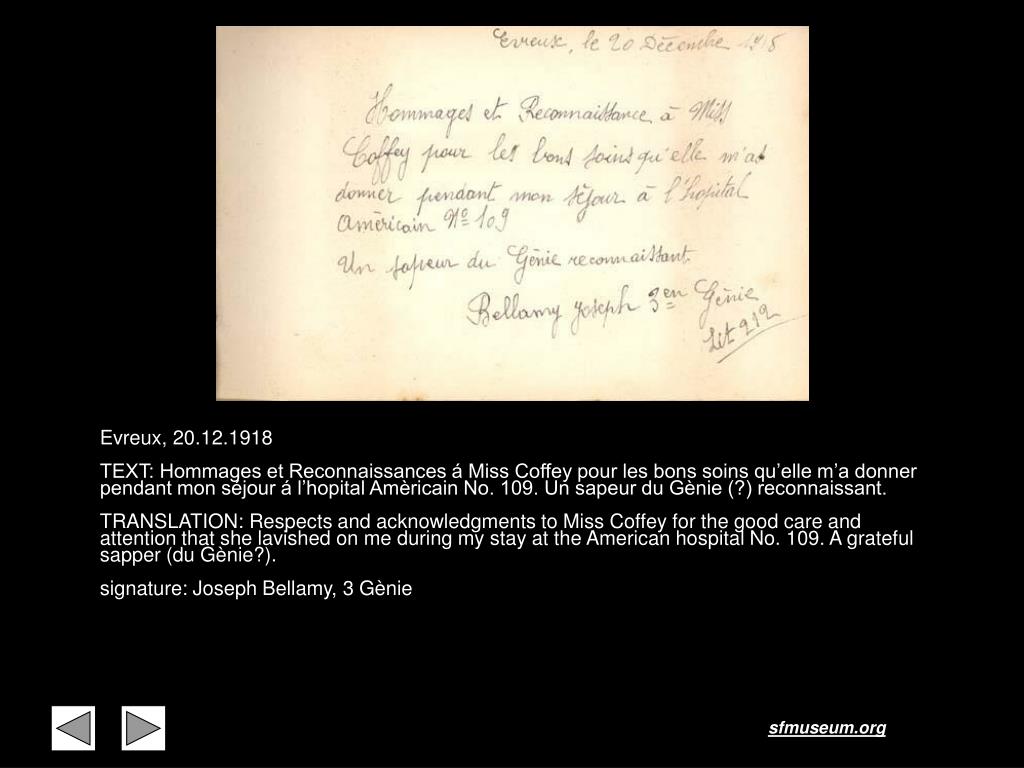 Evreux, le 20 Décembre 1918
Hommages et Reconnaissance à Miss
Coffey pour les bons soins qu'elle m'as
donner pendant mon séjour à l'hopital
Américain Nº 109
Un sapeur du Génie reconnaissant.
Bellamy Joseph 3en Génie
Lit 212
Evreux, 20.12.1918
TEXT: Hommages et Reconnaissances á Miss Coffey pour les bons soins qu’elle m’a donner
pendant mon séjour á l’hopital Amèricain No. 109. Un sapeur du Gènie (?) reconnaissant.
TRANSLATION: Respects and acknowledgments to Miss Coffey for the good care and
attention that she lavished on me during my stay at the American hospital No. 109. A grateful
sapper (du Gènie?).
signature: Joseph Bellamy, 3 Gènie
sfmuseum.org